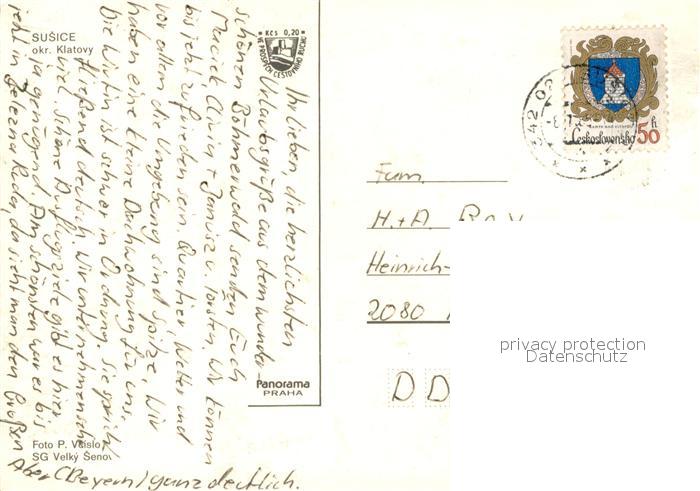 SUŠICE
okr. Klatovy
Kčs 0,20
VE PROSPĚCH CESTOVNÍHO RUCHU
Ihr lieben, die herzlichsten
Urlaubsgrüße aus dem wunder-
schönen Böhmerwald senden Euch
Torsten. Wir können
bis jetzt zufrieden sein. Quartier, Wetter und
vor allem die Umgebung sind spitze. Wir
haben eine kleine Dachwohnung für uns.
Die Wirtin ist schwer in Ordnung, sie spricht
fließend deutsch. Wir unternehmen sehr
viel. Schöne Ausflugsziele gibt es hier
ja genügend. Am schönsten war es bis
jetzt in Železná Ruda, da sieht man den Großen
Aber (Bayern) ganz deutlich.
Foto P. Vaislo
SG Velký Šenov
Panorama
PRAHA
342 02
Československo 50 h
Fam.
H. + A.
Heinrich-
2080
DD
privacy protection
Datenschutz